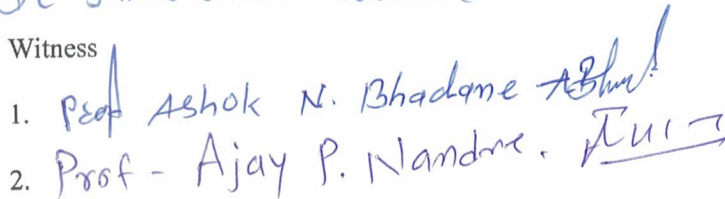 Witness
1. Prof Ashok N. Bhadane
2. Prof - Ajay P. Nandre.